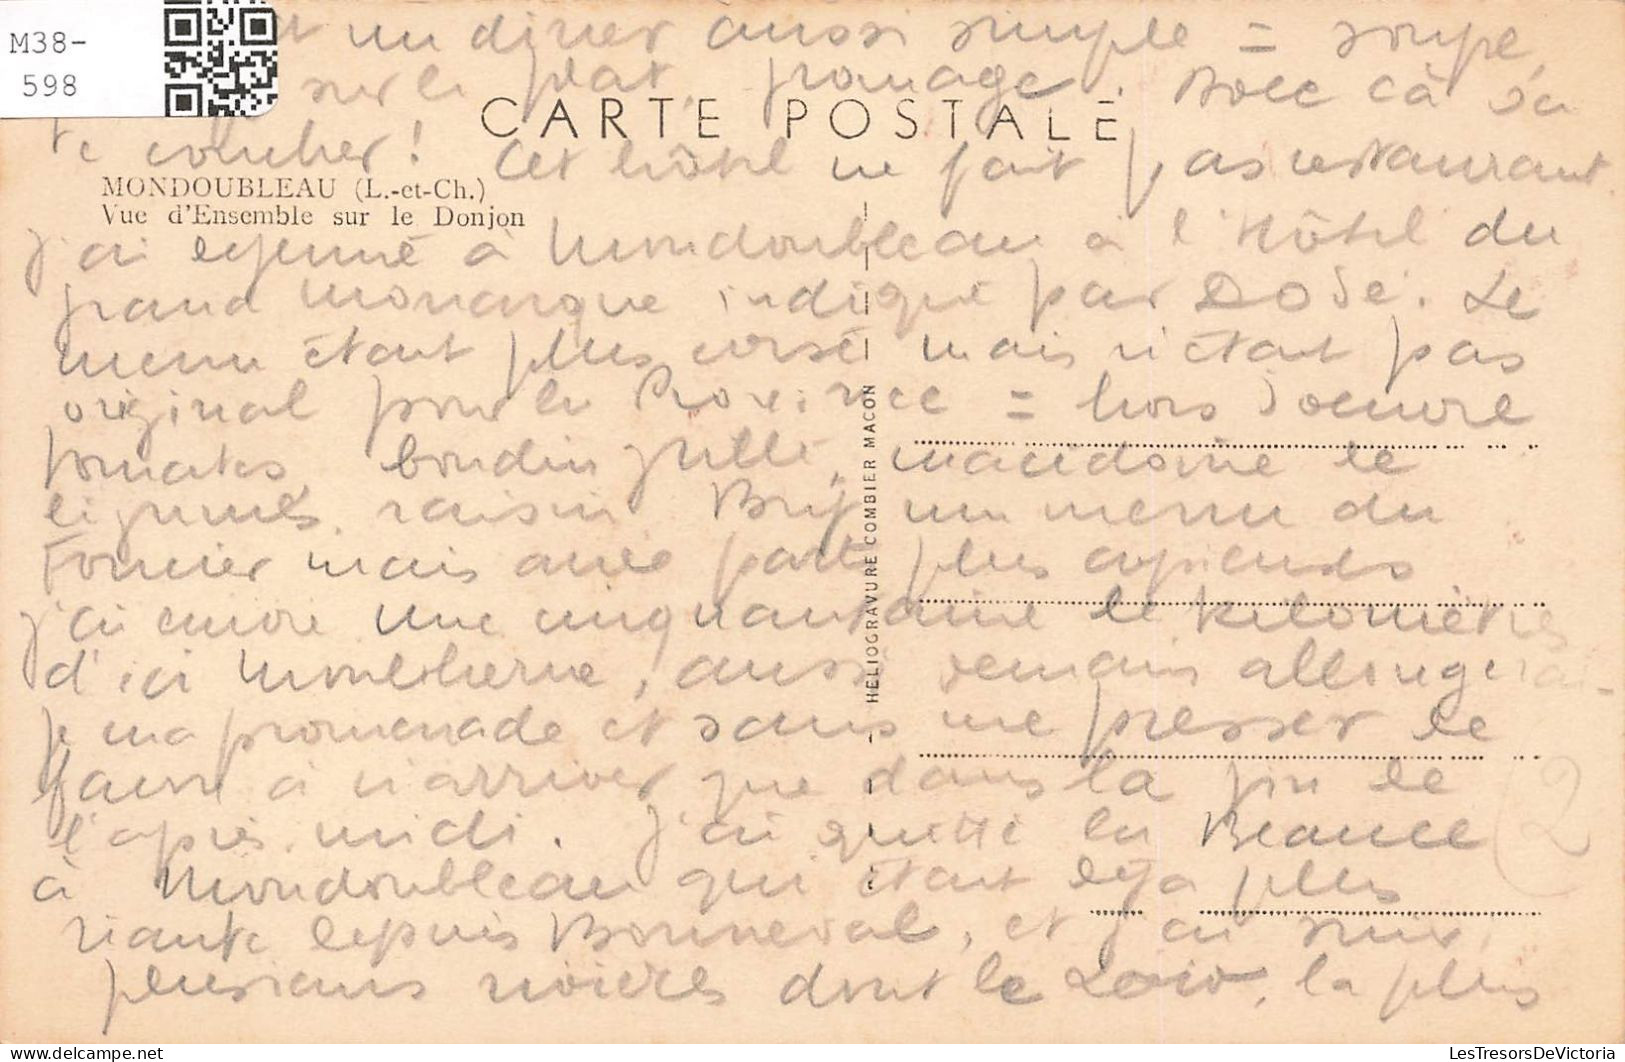 M38-
598
un diner aussi simple = soupe,
sur le plat, fromage. Avec ça va
te coucher ! Cet hôtel ne fait pas restaurant
CARTE POSTALE
MONDOUBLEAU (L.-et-Ch.)
Vue d'Ensemble sur le Donjon
j'ai déjeuné à Mondoubleau à l'Hôtel du
grand monarque indiqué par DOSÉ. Le
menu étant plus corsé mais n'étant pas
original pour la Province = hors d'oeuvre
tomates, boudin grillé, macédoine de
légumes, raisin. Bref un menu du
Fournier mais avec parts plus copieuses
j'ai encore une cinquantaine de kilomètres
d'ici Montlherne, aussi demain allongerai-
je ma promenade et sans me presser de
façon à n'arriver que dans la fin de
l'après midi. J'ai quitté la Beauce
à Mondoubleau qui était déjà plus
riante depuis Bonneval, et j'ai suivi
plusieurs rivières dont le Loir, la plus
2
HELIOGRAVURE COMBIER MACON
LesTresorsDeVictoria